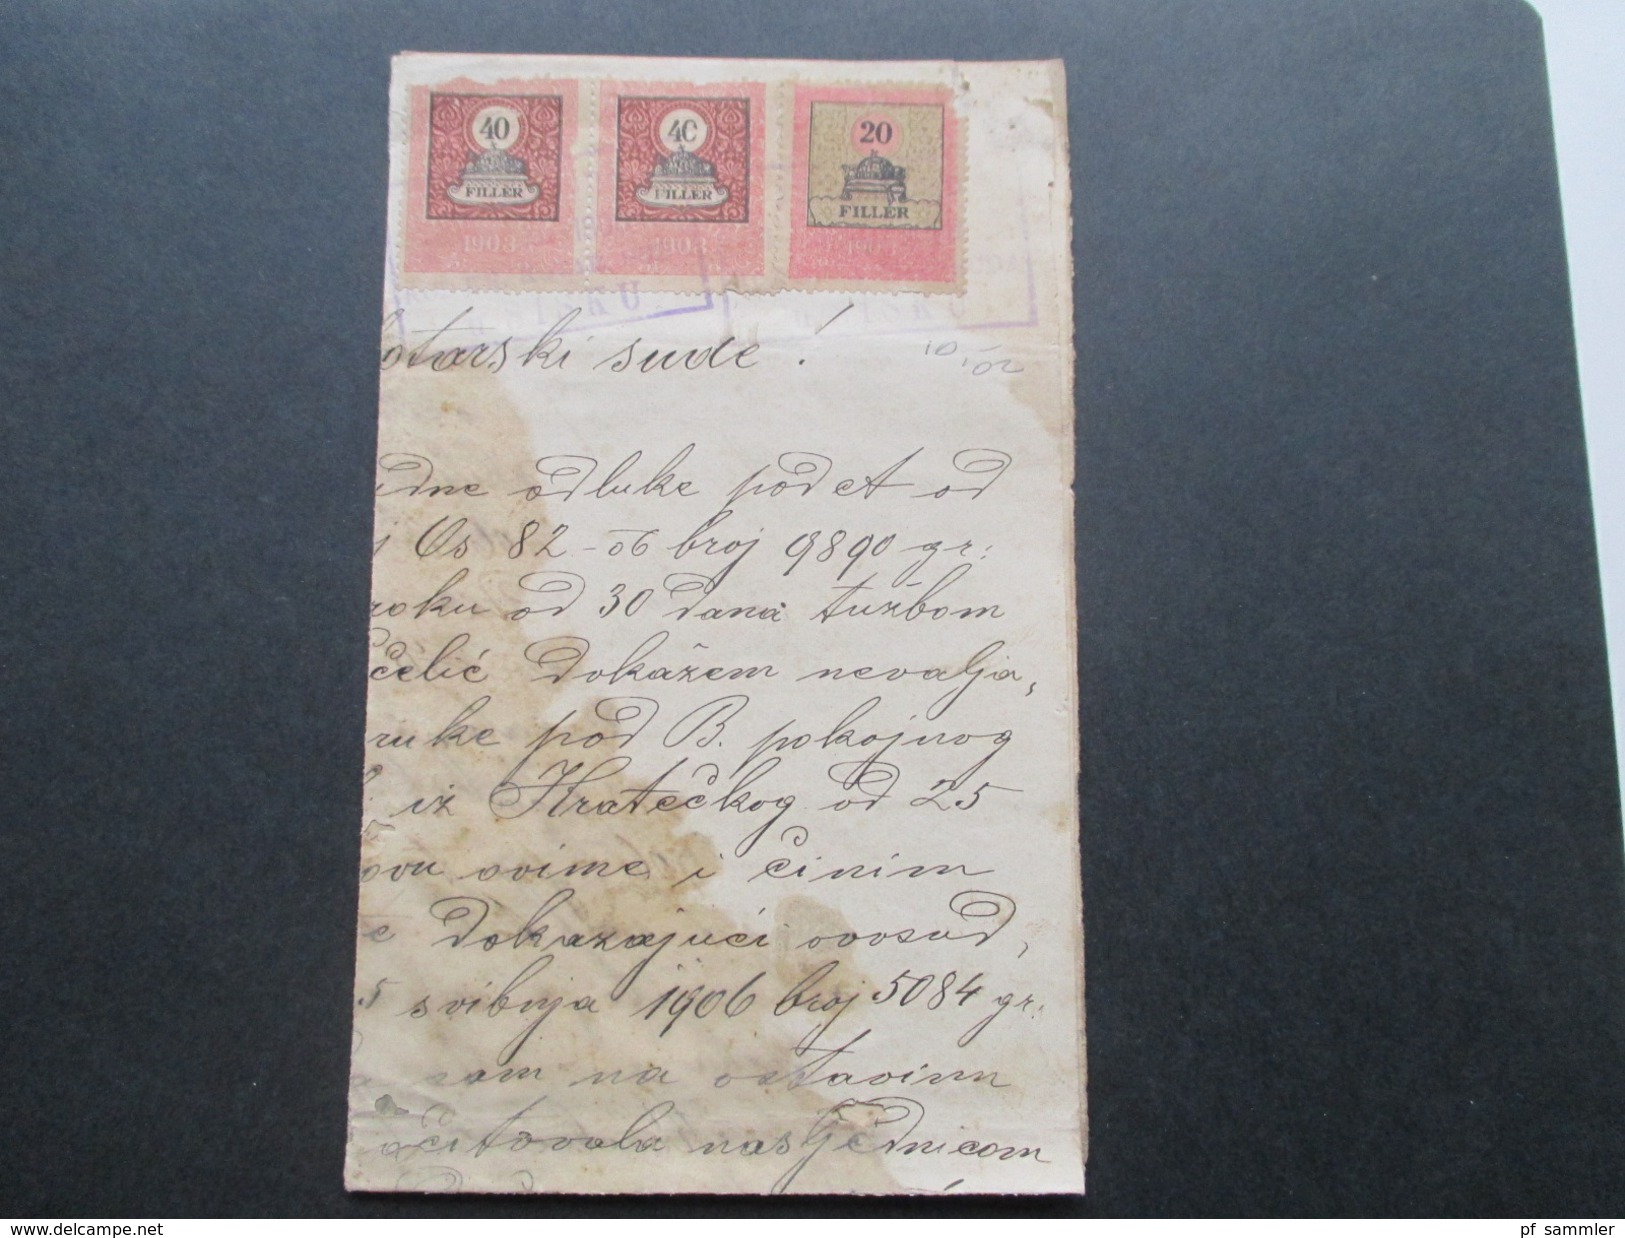 40 40 20
FILLER FILLER FILLER
1903 1903
otarski sude!
odluke pod et A od
Os 82-06 broj 9890 gr:
roku od 30 dana tužbom
čelić dokažem nevalja,
ruke pod B. pokojnog
iz Hratečkog od 25
ovime i činim
dokazajući ovosud,
5 svibnja 1906 broj 5084 gr:
sam na ostavinu
očitovala nasljednicom
© www.delcampe.net
pf_sammler